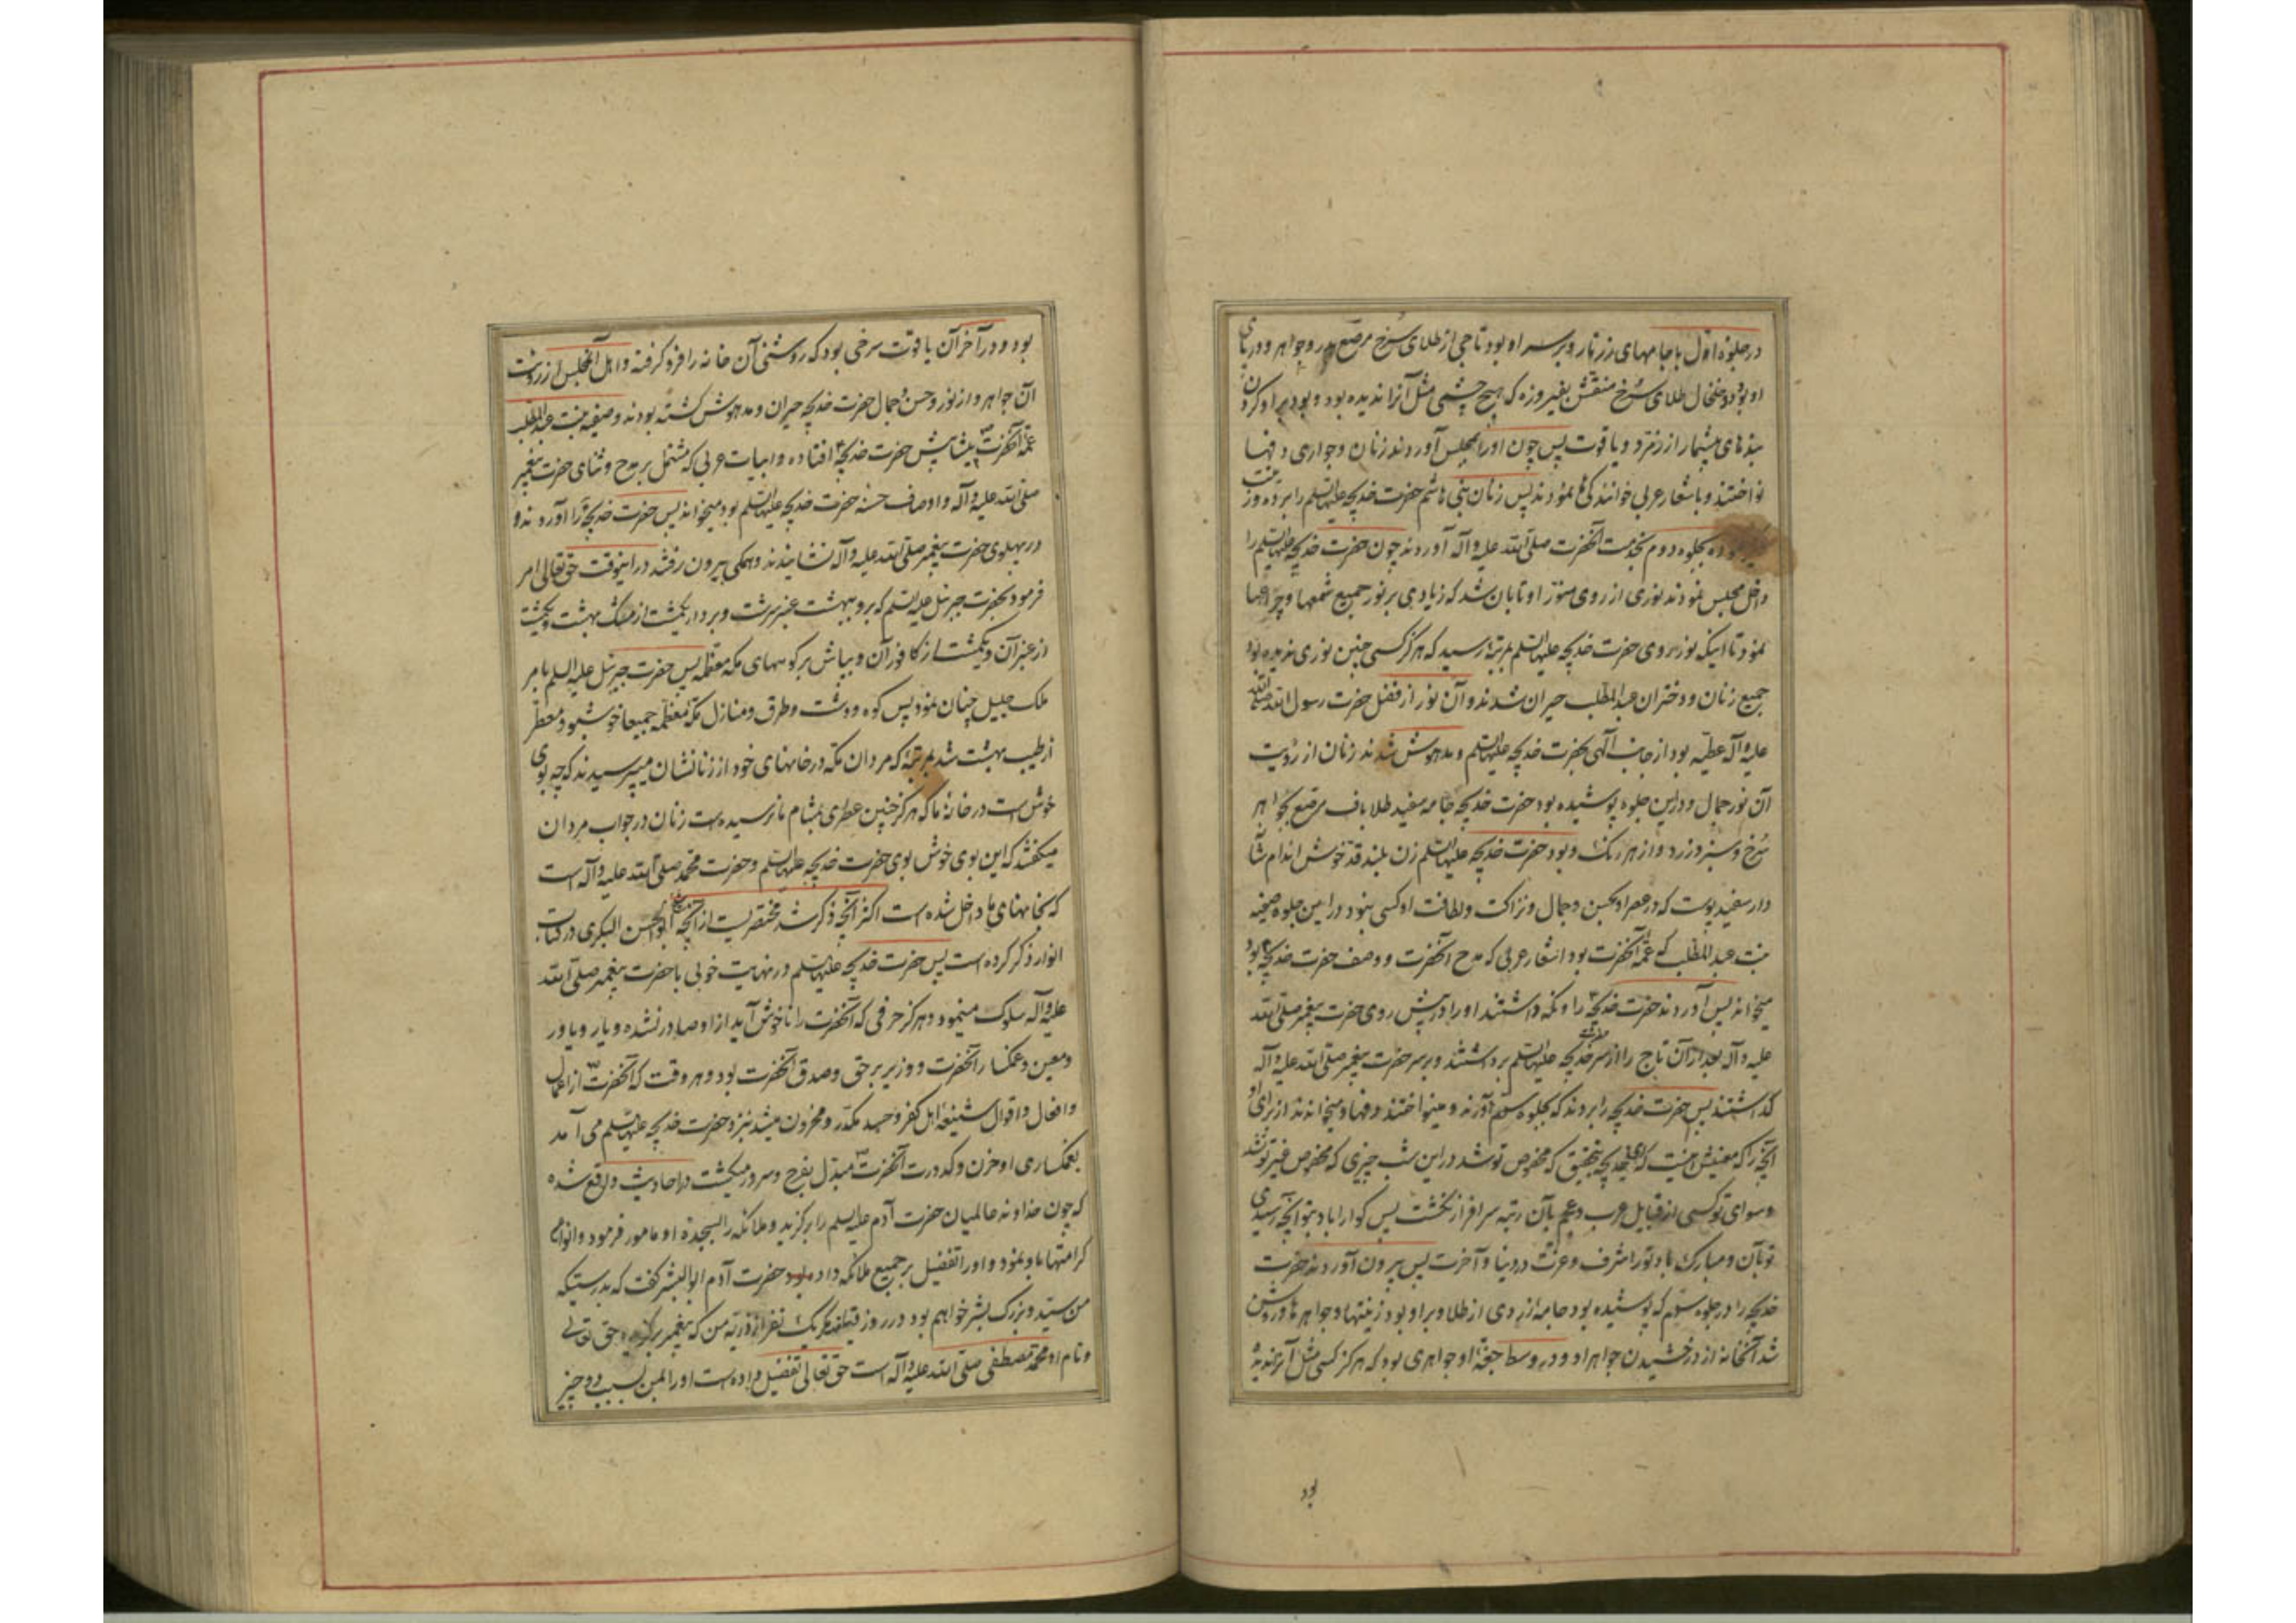 در جلوهٔ اول با جامهای زرتار و بر سر او بود تاجی از طلای سُرخ مرصع بدر و جواهر و در پای
او بود دو خلخال طلای سُرخ منقش بفیروزه که هیچ چشمی مثل آنرا ندیده بود و بود بر او کردن
بندهای بیشمار از زمرّد و یاقوت پس چون او را بمجلس آوردند زنان و جواری دفها
نواختند و باشعار عربی خوانندکی‌ها نمودند پس زنان بنی هاشم حضرت خدیجه علیها السلم را برده و زینت
ده بجلوه دوم بخدمت آنحضرت صلی الله علیه و آله آوردند چون حضرت خدیجه علیها السلم را
داخل مجلس نمودند نوری از روی منوّر او تابان شد که زیادی بر نور جمیع شمعها و چراغها
نمود تا اینکه نور روی حضرت خدیجه علیها السلم بمرتبهٔ رسید که هرکز کسی چنین نوری ندیده بود
جمیع زنان و دختران عبد المطلب حیران شدند و آن نور از فضل حضرت رسول الله صلی الله
علیه و آله عطیّه بود از جانب آلهی بحضرت خدیجه علیها السلم و مدهوش شدند زنان از رؤیت
آن نور جمال و در این جلوه پوشیده بود حضرت خدیجه جامه سفید طلا باف مرصع بجواهر
سُرخ و سبز و زرد و از هر رنک و بود حضرت خدیجه علیها السلم زن بلند قد خوش اندام شأن
دار سفید پوست که در عصر او بحسن و جمال و نزاکت و لطافت او کسی نبود و در این جلوه صفیه
بنت عبد المطلب که عمّهٔ آنحضرت بود اشعار عربی که مدح آنحضرت و وصف حضرت خدیجه بود
میخواند پس آوردند حضرت خدیجه را و نکه داشتند او را در پیش روی حضرت پیغمبر صلی الله
علیه و آله بعد از آن تاج را از سر حضرت خدیجه علیها السلم برداشتند و بر سر حضرت پیغمبر صلی الله علیه و آله
کذاشتند پس حضرت خدیجه را بردند که بجلوه سیّم آورند و مینواختند دفها و میخواندند از برای او
آنچه را که معنیش اینست که ای خدیجه بتحقیق که مخصوص تو شد در این شب چیزی که مخصوص غیر تو نشد
و سوای تو کسی از قبایل عرب و عجم بآن رتبه سرافراز نکشت پس کوارا باد بتو آنچه رسیدی
تو بآن و مبارک باد تو را شرف و عزت در دنیا و آخرت پس بیرون آوردند حضرت
خدیجه را در جلوه سیّم که پوشیده بود جامه زردی از طلا و بر او بود زینتها و جواهرها و روشن
شد آنخانه از درخشیدن جواهر او و در وسط جقهٔ او جواهری بود که هرکز کسی مثل آنرا ندیده
بود
بود و در آخر آن یاقوت سرخی بود که روشنی آن خانه را فرو کرفته و اهل آنمجلس از رؤیت
آن جواهر و از نور و حسن و جمال حضرت خدیجه حیران و مدهوش کشته بودند و صفیه بنت عبد المطلب
عمّهٔ آنحضرت پیشاپیش حضرت خدیجه افتاده و ابیات عربی که مشتمل بر مدح و ثنای حضرت پیغمبر
صلی الله علیه و آله و اوصاف حسنه حضرت خدیجه علیها السلم بود میخواند پس حضرت خدیجه را آوردند و
در پهلوی حضرت پیغمبر صلی الله علیه و آله نشانیدند و همکی بیرون رفتند در اینوقت حق تعالی امر
فرمود بحضرت جبرئیل علیه السلم که برو ببهشت عنبر سرشت و بردار یکمشت از مشک بهشت و یکمشت
از عنبر آن و یکمشت از کافور آن و بپاش بر کوههای مکه معظمه پس حضرت جبرئیل علیه السلم بامر
ملک جلیل چنان نمود پس کوه و دشت و طرق و منازل مکهٔ معظمه جمیعا خوشبو و معطر
از طیب بهشت شد بمرتبهٔ که مردان مکه در خانهای خود از زنانشان میپرسیدند که چه بوی
خوش است در خانهٔ ما که هرکز چنین عطری بمشام ما نرسیده است زنان در جواب مردان
میکفتند که این بوی خوش بوی حضرت خدیجه علیها السلم و حضرت محمد صلی الله علیه و آله است
که بخانهای ما داخل شده است اکثر آنچه ذکر شد مختصریست از آنچه شیخ ابو الحسن البکری در کتاب
انوار ذکر کرده است پس حضرت خدیجه علیها السلم در نهایت خوبی با حضرت پیغمبر صلی الله
علیه و آله سلوک مینمود و هرکز حرفی که آنحضرت را ناخوش آید از او صادر نشده و یار و یاور
و معین و غمکسار آنحضرت و وزیر بر حق و صدق آنحضرت بود و هر وقت که آنحضرت از اعمال
و افعال و اقوال شنیعهٔ اهل کفر و حسد مکدّر و محزون میشد نزد حضرت خدیجه علیها السلم می آمد
بغمکساری او حزن و کدورت آنحضرت مبدّل بفرح و سرور میکشت در احادیث واقع شده
که چون خداوند عالمیان حضرت آدم علیه السلم را برکزید و ملائکه را بسجدهٔ او مامور فرمود و انواع
کرامتها باو نمود و او را تفضیل بر جمیع ملائکه داد حضرت آدم ابو البشر کفت که بدرستیکه
من سیّد و بزرک بشر خواهم بود در روز قیامت مکر یک نفر از ذریّه من که پیغمبر برکزیده حق تعالی
و نام او محمّد مصطفی صلی الله علیه و آله است حق تعالی تفضیل داده است او را بمن بسبب دو چیز